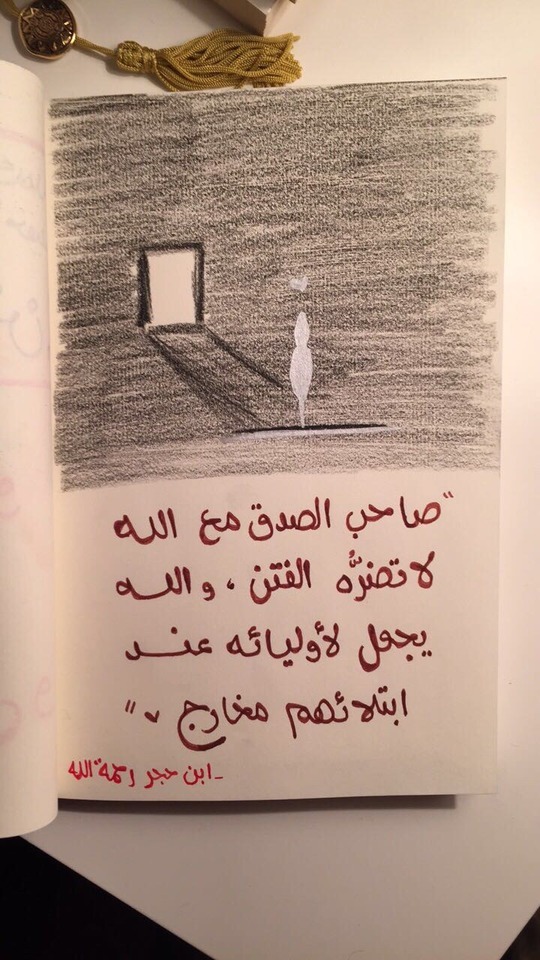 "صاحب الصدق مع الله
لا تضرُّه الفتن ، والله
يجعل لأوليائه عند
ابتلائهم مخارج "
- ابن حجر رحمة الله